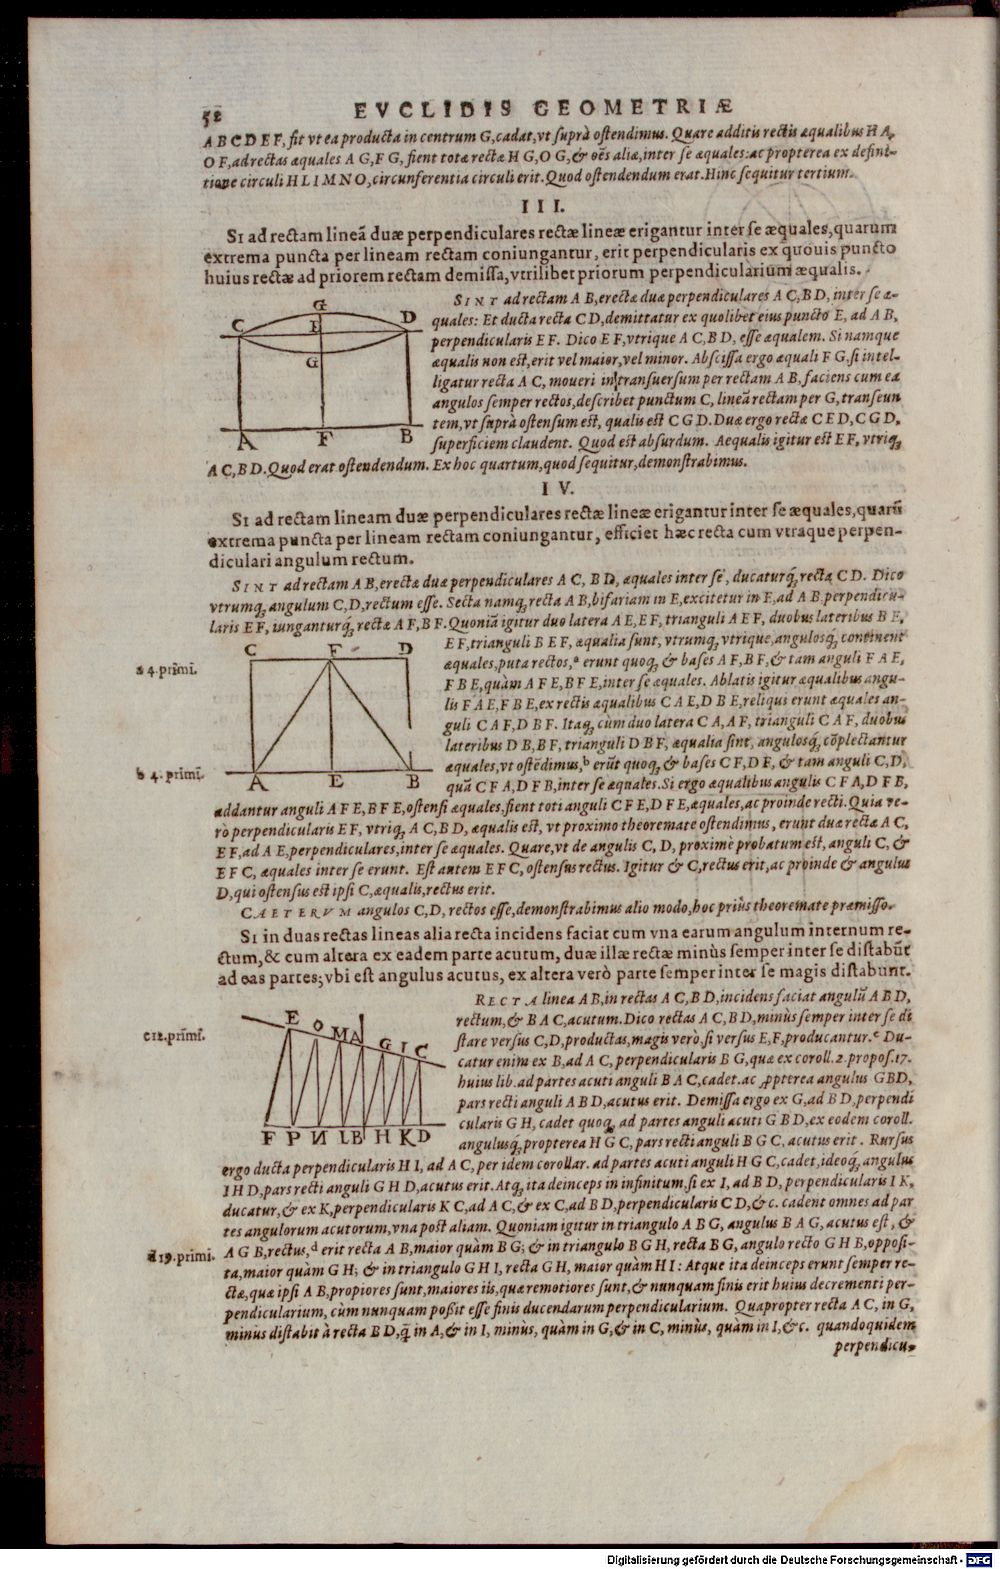 52 EVCLIDIS GEOMETRIÆ
A B C D E F, fit vt ea producta in centrum G, cadat, vt suprà ostendimus. Quare additis rectis æqualibus H A,
O F, ad rectas æquales A G, F G, fient totæ rectæ H G, O G, & oẽs aliæ, inter se æquales: ac propterea ex defini-
tione circuli H L I M N O, circunferentia circuli erit. Quod ostendendum erat. Hinc sequitur tertium.
III.
SI ad rectam lineã duæ perpendiculares rectæ lineæ erigantur inter se æquales, quarum
extrema puncta per lineam rectam coniungantur, erit perpendicularis ex quouis puncto
huius rectæ ad priorem rectam demissa, vtrilibet priorum perpendicularium æqualis.
SINT ad rectam A B, erectæ duæ perpendiculares A C, B D, inter se æ-
quales: Et ducta recta C D, demittatur ex quolibet eius puncto E, ad A B,
perpendicularis E F. Dico E F, vtrique A C, B D, esse æqualem. Si namque
æqualis non est, erit vel maior, vel minor. Abscissa ergo æquali F G, si intel-
ligatur recta A C, moueri in transuersum per rectam A B, faciens cum ea
angulos semper rectos, describet punctum C, lineã rectam per G, transeun
tem, vt suprà ostensum est, qualis est C G D. Duæ ergo rectæ C E D, C G D,
superficiem claudent. Quod est absurdum. Aequalis igitur est E F, vtriq;
A C, B D. Quod erat ostendendum. Ex hoc quartum, quod sequitur, demonstrabimus.
G
C E D
G
A F B
IV.
SI ad rectam lineam duæ perpendiculares rectæ lineæ erigantur inter se æquales, quarũ
extrema puncta per lineam rectam coniungantur, efficiet hæc recta cum vtraque perpen-
diculari angulum rectum.
SINT ad rectam A B, erectæ duæ perpendiculares A C, B D, æquales inter se, ducaturq; recta C D. Dico
vtrumq; angulum C, D, rectum esse. Secta namq; recta A B, bifariam in E, excitetur in E, ad A B, perpendicu-
laris E F, iunganturq; rectæ A F, B F. Quoniã igitur duo latera A E, E F, trianguli A E F, duobus lateribus B E,
E F, trianguli B E F, æqualia sunt, vtrumq; vtrique, angulosq; continent
æquales, puta rectos, a erunt quoq; & bases A F, B F, & tam anguli F A E,
F B E, quàm A F E, B F E, inter se æquales. Ablatis igitur æqualibus angu-
lis F A E, F B E, ex rectis æqualibus C A E, D B E, reliqui erunt æquales an-
guli C A F, D B F. Itaq; cùm duo latera C A, A F, trianguli C A F, duobus
lateribus D B, B F, trianguli D B F, æqualia sint, angulosq; cõplectantur
æquales, vt ostẽdimus, b erũt quoq; & bases C F, D F, & tam anguli C, D,
quã C F A, D F B, inter se æquales. Si ergo æqualibus angulis C F A, D F B,
addantur anguli A F E, B F E, ostensi æquales, fient toti anguli C F E, D F E, æquales, ac proinde recti. Quia ve-
rò perpendicularis E F, vtriq; A C, B D, æqualis est, vt proximo theoremate ostendimus, erunt duæ rectæ A C,
E F, ad A E, perpendiculares, inter se æquales. Quare, vt de angulis C, D, proximè probatum est, anguli C, &
E F C, æquales inter se erunt. Est autem E F C, ostensus rectus. Igitur & C, rectus erit, ac proinde & angulus
D, qui ostensus est ipsi C, æqualis, rectus erit.
a 4. primi.
b 4. primi.
C F D
A E B
CAETERVM angulos C, D, rectos esse, demonstrabimus alio modo, hoc priùs theoremate præmisso.
SI in duas rectas lineas alia recta incidens faciat cum vna earum angulum internum re-
ctum, & cum altera ex eadem parte acutum, duæ illæ rectæ minùs semper inter se distabũt
ad eas partes, vbi est angulus acutus, ex altera verò parte semper inter se magis distabunt.
RECTA linea A B, in rectas A C, B D, incidens faciat angulũ A B D,
rectum, & B A C, acutum. Dico rectas A C, B D, minùs semper inter se di
stare versus C, D, productas, magis verò, si versus E, F, producantur. c Du-
catur enim ex B, ad A C, perpendicularis B G, quæ ex coroll. 2. propos. 17.
huius lib. ad partes acuti anguli B A C, cadet. ac ꝓpterea angulus G B D,
pars recti anguli A B D, acutus erit. Demissa ergo ex G, ad B D, perpendi
cularis G H, cadet quoq; ad partes anguli acuti G B D, ex eodem coroll.
angulusq; propterea H G C, pars recti anguli B G C, acutus erit. Rursus
ergo ducta perpendicularis H I, ad A C, per idem corollar. ad partes acuti anguli H G C, cadet, ideoq; angulus
I H D, pars recti anguli G H D, acutus erit. Atq; ita deinceps in infinitum, si ex I, ad B D, perpendicularis I K,
ducatur, & ex K, perpendicularis K C, ad A C, & ex C, ad B D, perpendicularis C D, &c. cadent omnes ad par
tes angulorum acutorum, vna post aliam. Quoniam igitur in triangulo A B G, angulus B A G, acutus est, &
A G B, rectus, d erit recta A B, maior quàm B G; & in triangulo B G H, recta B G, angulo recto G H B, opposi-
ta, maior quàm G H; & in triangulo G H I, recta G H, maior quàm H I: Atque ita deinceps erunt semper re-
ctæ, quæ ipsi A B, propiores sunt, maiores iis, quæ remotiores sunt, & nunquam finis erit huius decrementi per-
pendicularium, cùm nunquam possit esse finis ducendarum perpendicularium. Quapropter recta A C, in G,
minus distabit à recta B D, q̃ in A, & in I, minùs, quàm in G, & in C, minùs, quàm in I, &c. quandoquidem
perpendicu-
c 12. primi.
d 19. primi.
E O M A G I C
F P N L B H K D
Digitalisierung gefördert durch die Deutsche Forschungsgemeinschaft - DFG